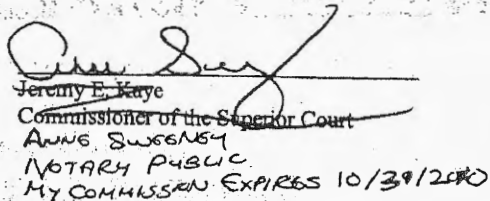 Jeremy E. Kaye
Commissioner of the Superior Court
ANNE SWEENEY
NOTARY PUBLIC
MY COMMISSION EXPIRES 10/31/2010